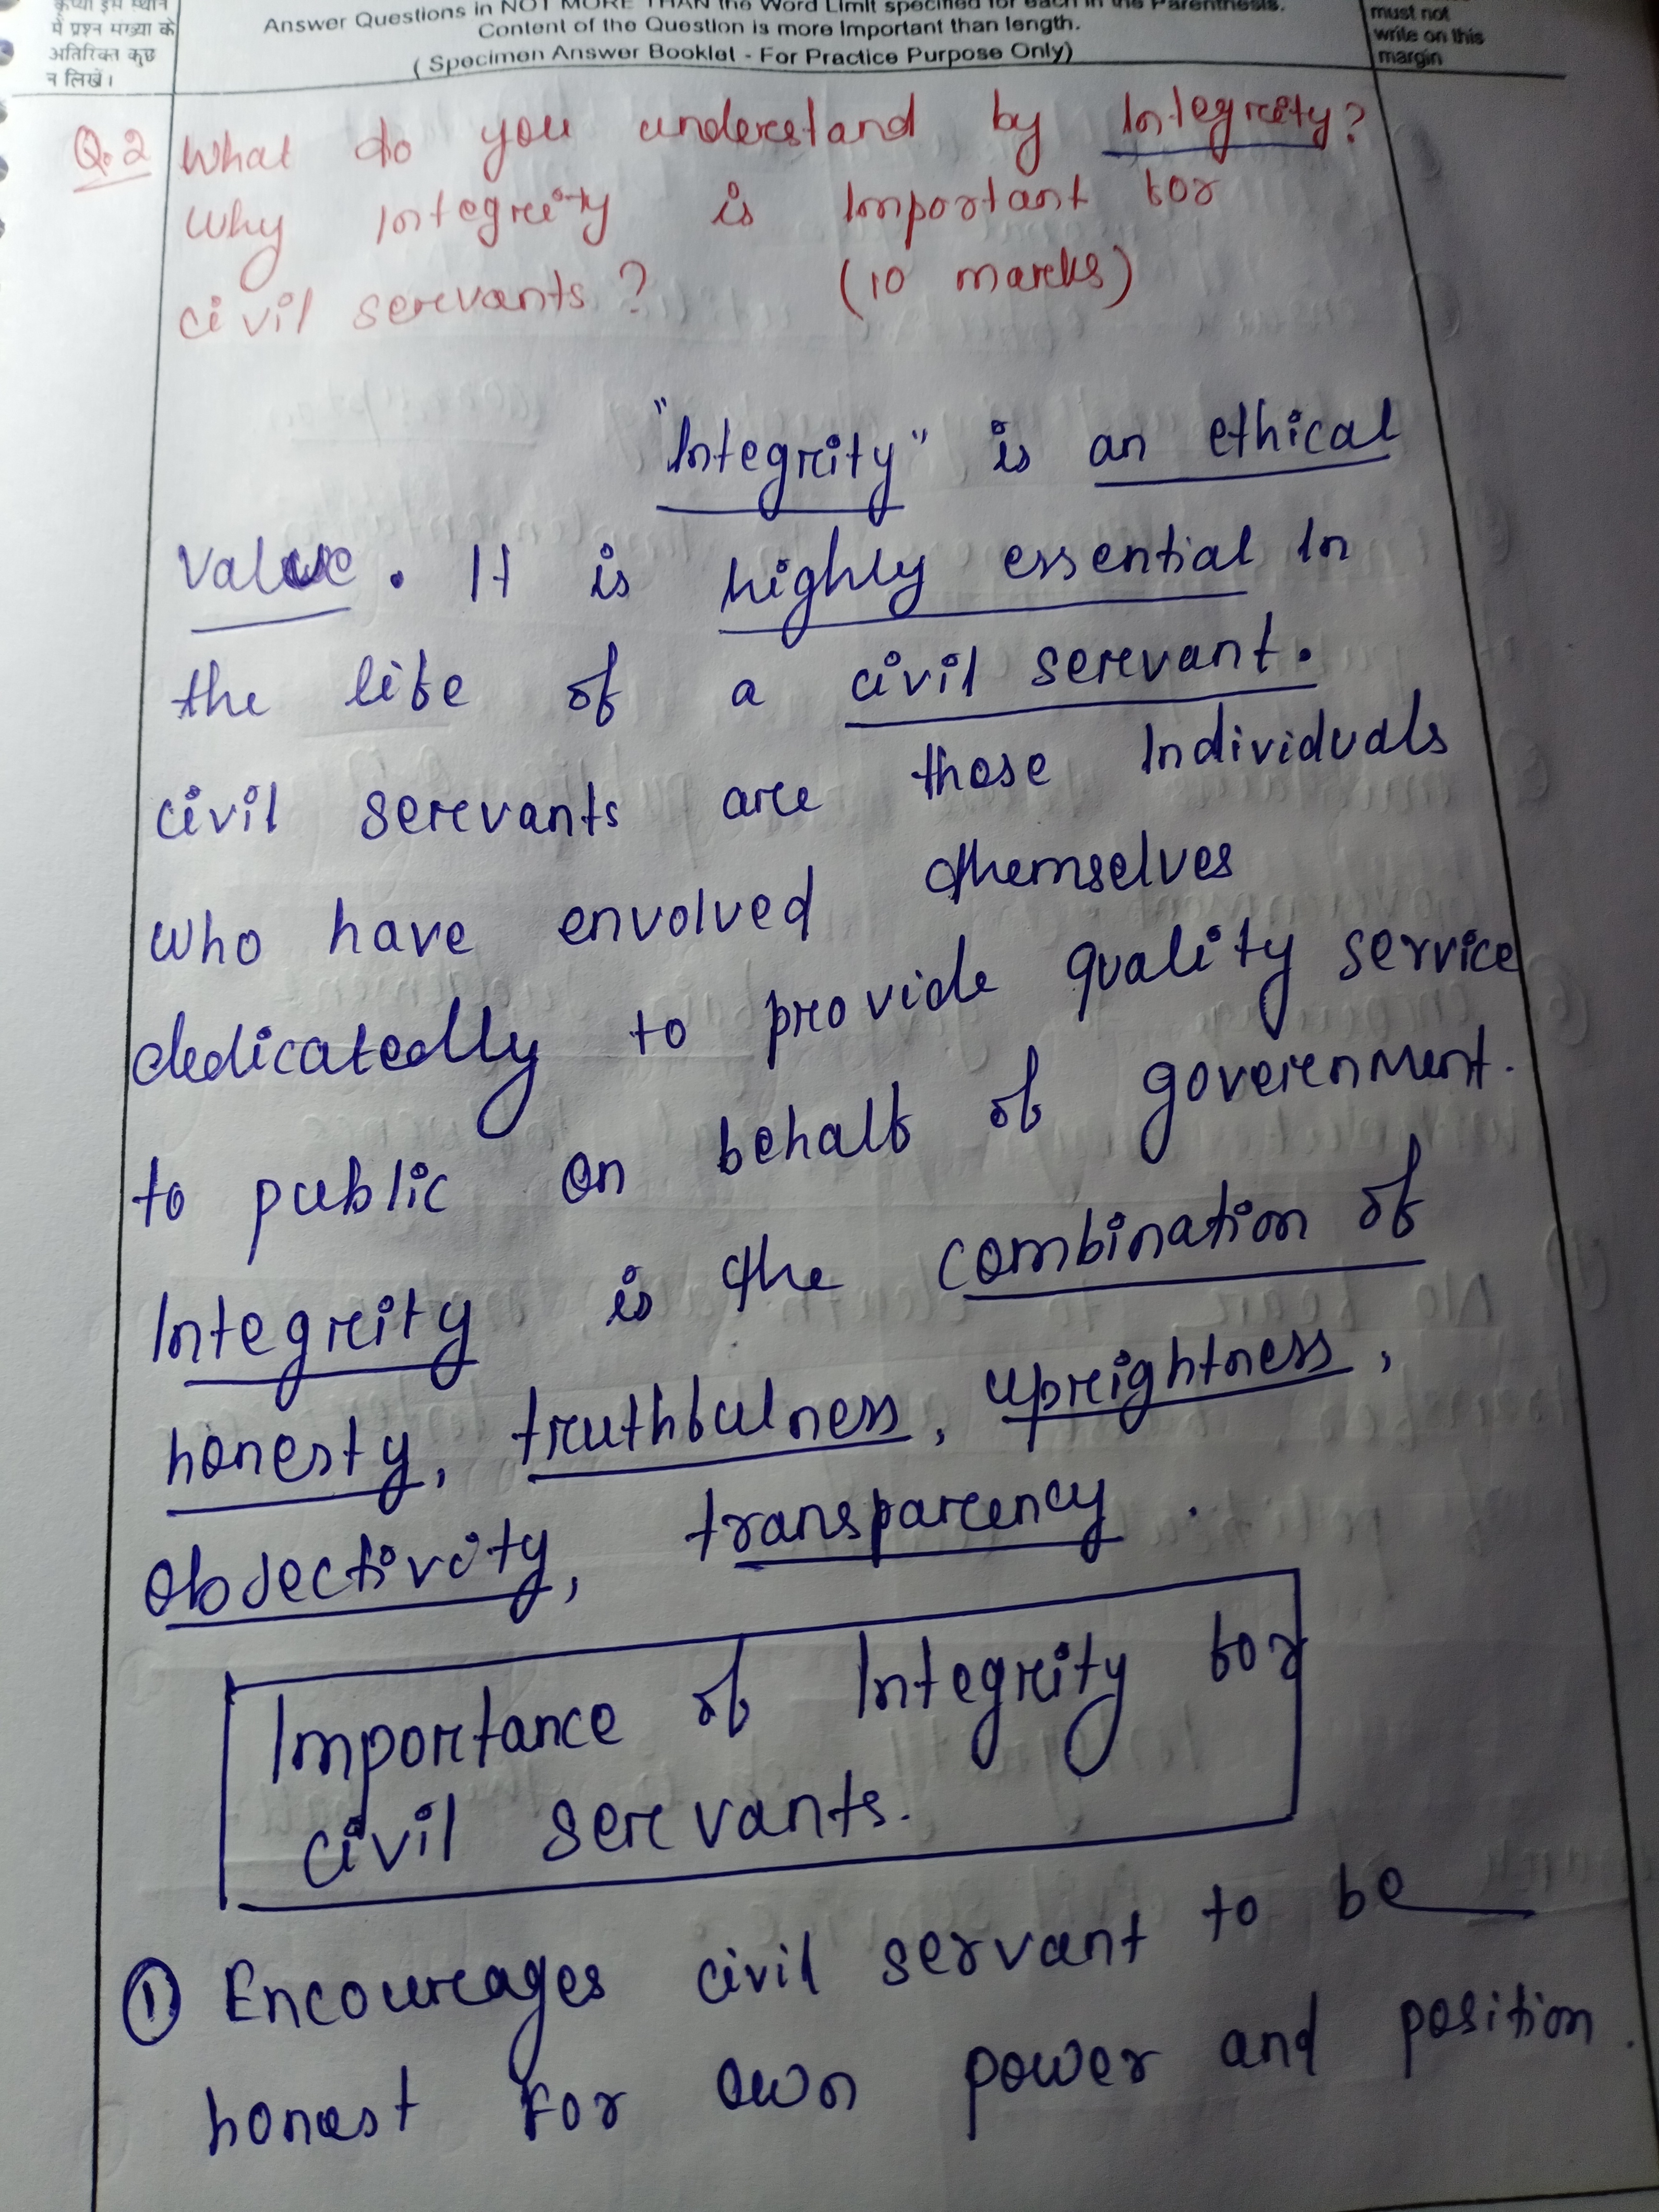 कृप्या इस स्थान
में प्रश्न संख्या के
अतिरिक्त कुछ
न लिखें।
Answer Questions in NOT MORE THAN the Word Limit specified for each in the Parenthesis.
Content of the Question is more Important than length.
( Specimen Answer Booklet - For Practice Purpose Only)
must not
write on this
margin
Q.2 What do you understand by Integrity?
Why Integrity is Important for
civil servants? (10 marks)
"Integrity" is an ethical
value. It is highly essential In
the life of a civil servant.
civil servants are those Individuals
who have envolved themselves
dedicatedly to provide quality service
to public on behalf of government.
Integrity is the combination of
honesty, truthfulness, uprightness,
objectivity, transparency.
Importance of Integrity for
civil servants.
① Encourages civil servant to be
honest For own power and position.